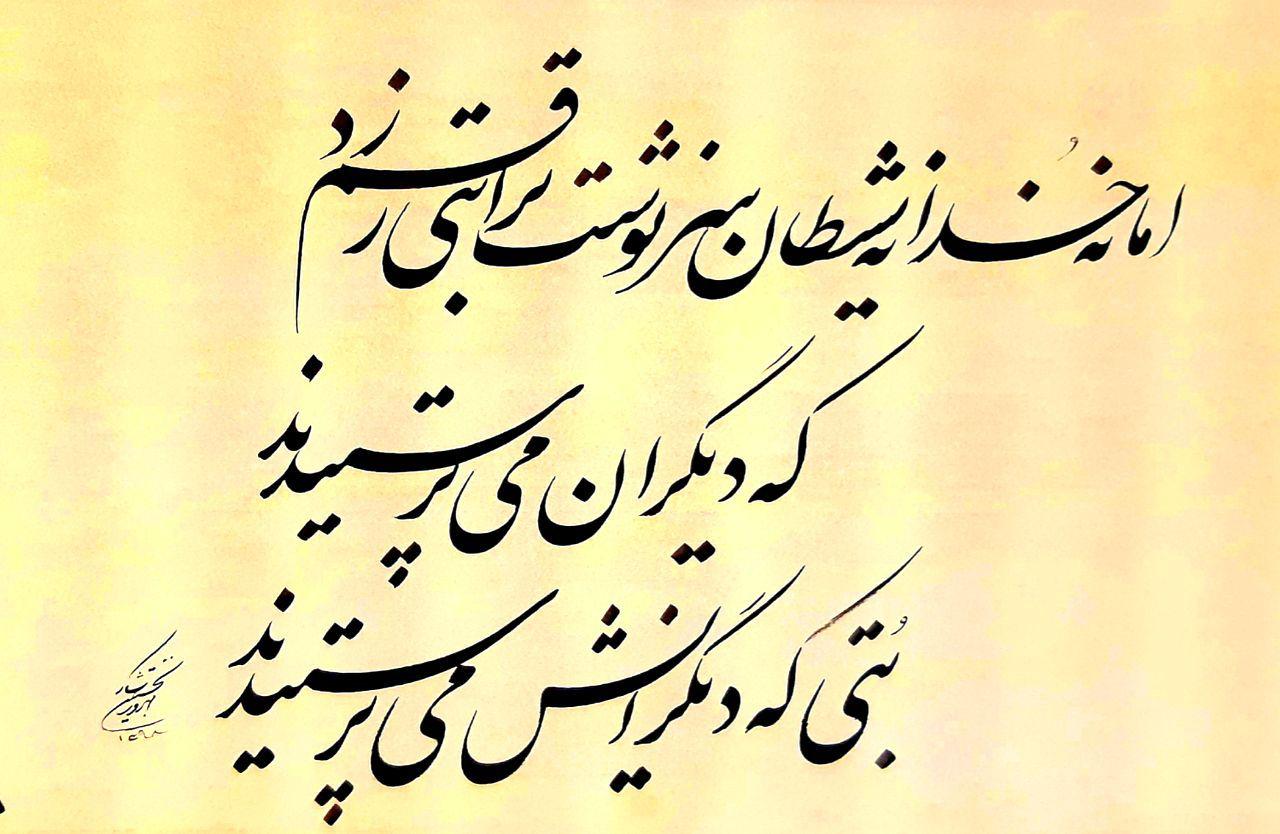 اما نه خُدا نه شیطان سرنوشت ترا بتی رقم زد
که دیگران می پرستیدند
بُتی که دیگرانش می پرستیدند